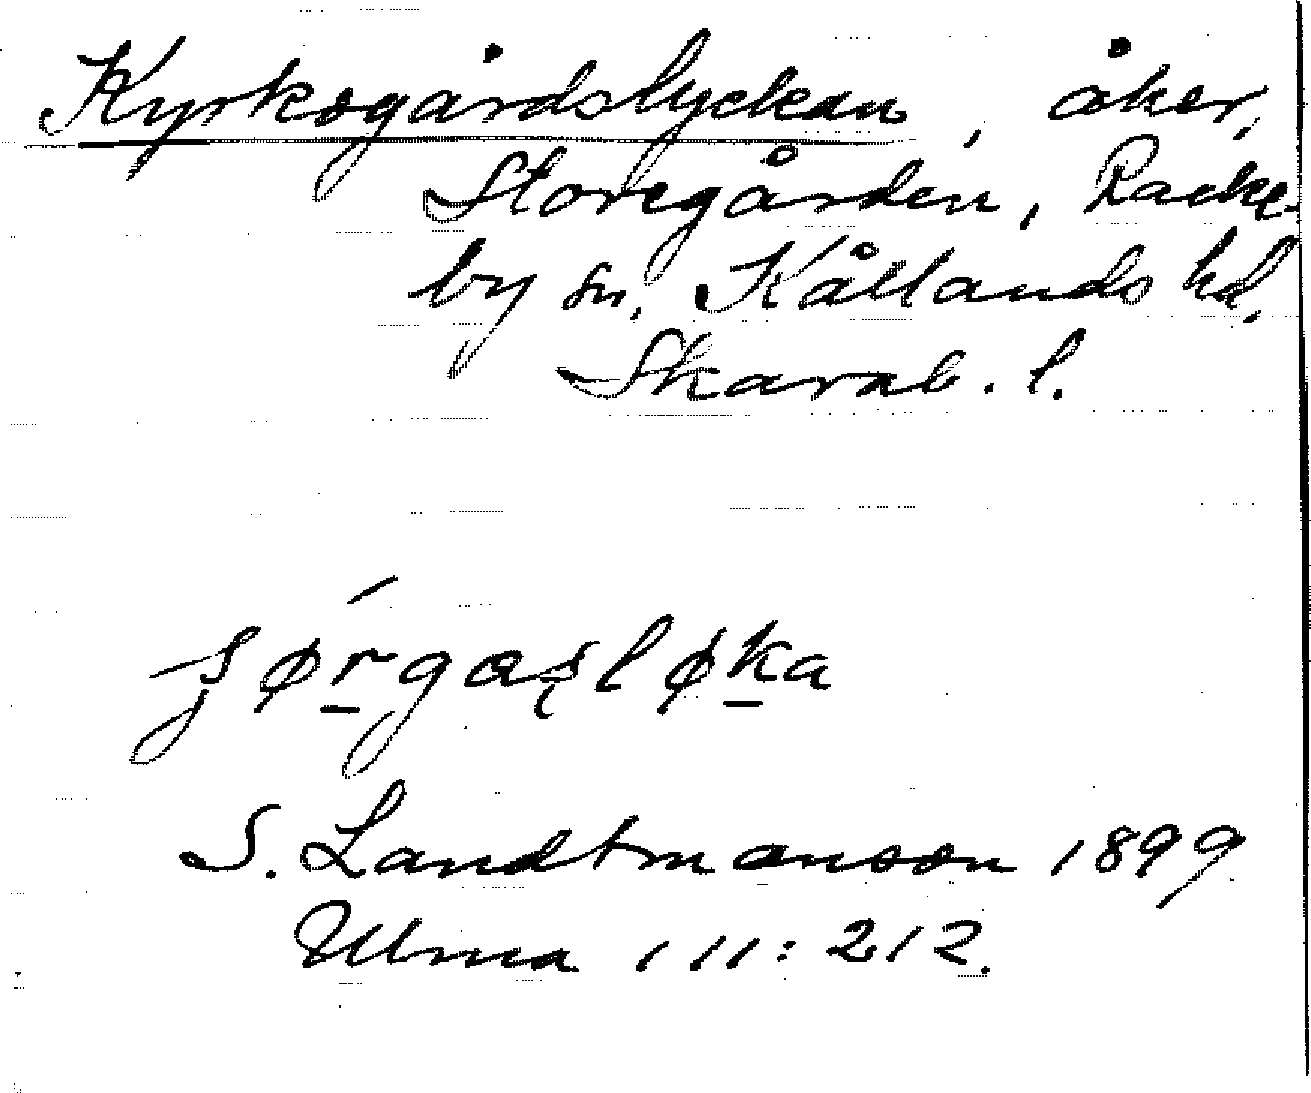 Kyrkogårdslyckan, åker,
Storegården, Racke-
by sn, Kållands hd.
Skarab. l.
S. Landtmanson 1899
Ulma 111:212.